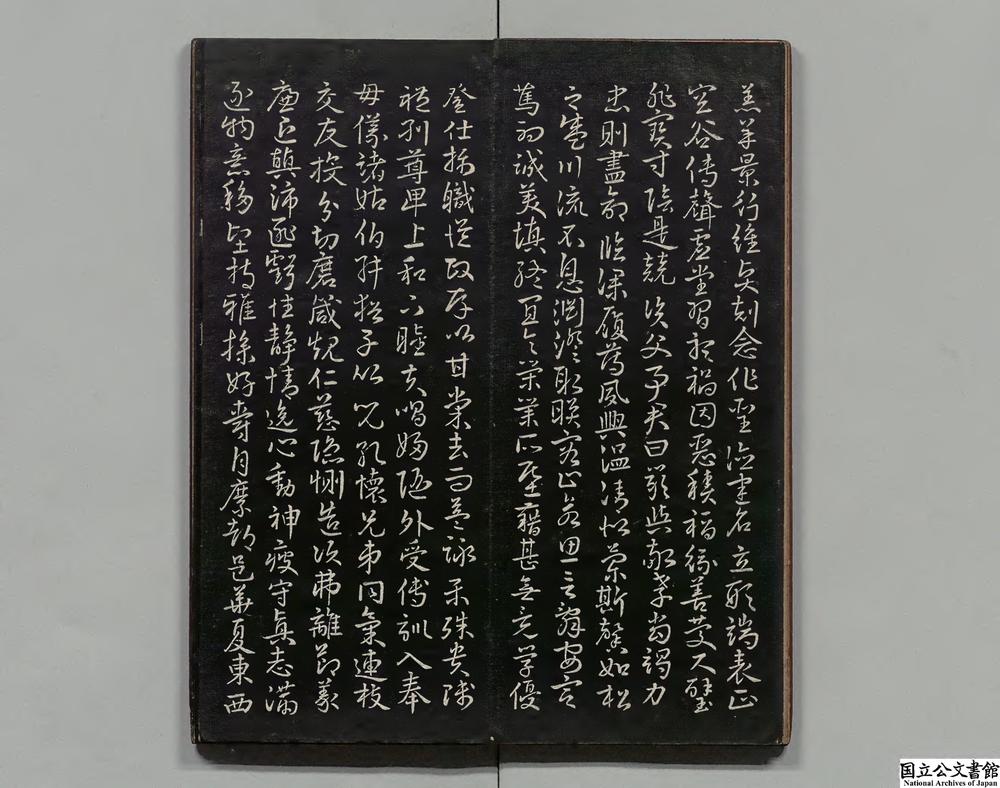 羔羊景行維賢剋念作聖德建名立形端表正
空谷傳聲虛堂習聽禍因惡積福緣善慶尺璧
非寶寸陰是競資父事君曰嚴與敬孝當竭力
忠則盡命臨深履薄夙興溫清似蘭斯馨如松
之盛川流不息淵澄取暎容止若思言辭安定
篤初誠美慎終宜令榮業所基籍甚無竟學優
登仕攝職從政存以甘棠去而益詠樂殊貴賤
禮別尊卑上和下睦夫唱婦隨外受傅訓入奉
母儀諸姑伯叔猶子比兒孔懷兄弟同氣連枝
交友投分切磨箴規仁慈隱惻造次弗離節義
廉退顛沛匪虧性靜情逸心動神疲守真志滿
逐物意移堅持雅操好爵自縻都邑華夏東西
国立公文書館
National Archives of Japan